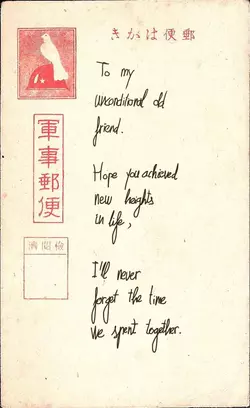 郵便はかき
To my
unconditional old
friend.
軍事郵便
Hope you achieved
new heights
in life,
檢閲濟
I'll never
forget the time
we spent together.